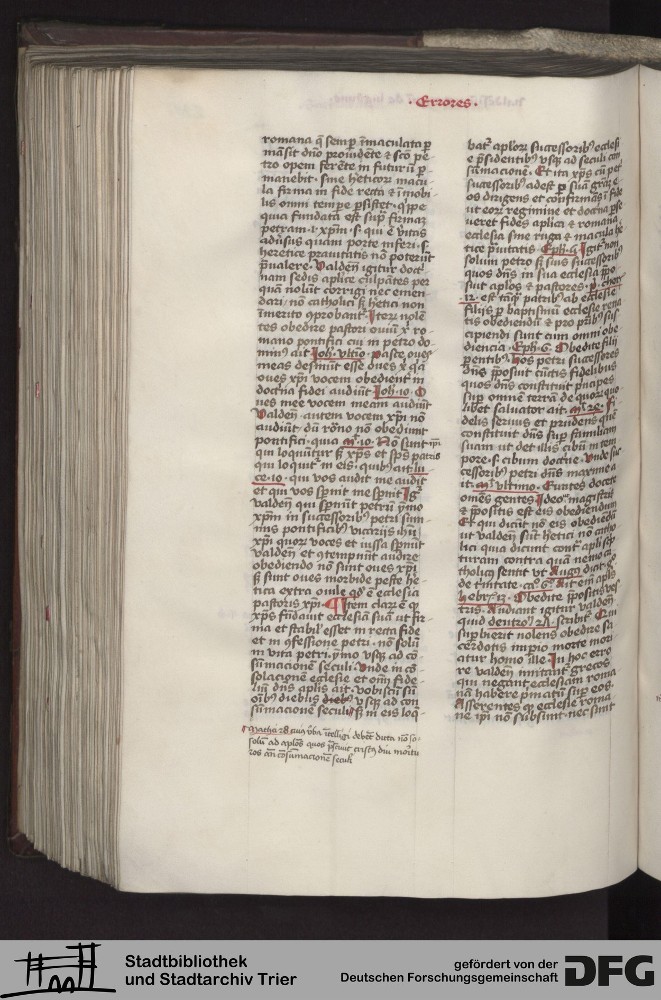 · Errores ·
romana q̄ semp̲ īmaculata p̲
māsit dn̄o prouidēte ⁊ scō pe
tro opem ferēte in futurū p̲
manebit · sine heticoꝝ macu
la firma in fide recta ⁊ īmobi
lis omni tempe p̲sistet · qͥppe
quia fundata est sup̲ firmaꝫ
petram · r̄ xp̄m · s · qui ē vitas
adūsus quam porte inferi · s ·
heretice prauitatis nō poterūt
p̄ualere · valden̄ igitur doct
nam sedis aplice culpātes per
quā nolūt corrigi nec emen
dari / nō catholici sꝫ hetici non
īmerito ꝯprobant᷑ · Iteꝝ nolē
tes obedire pastori ouiū xͥ ro
mano pontifici cui in petro do
minꝰ ait Joh̄ · vltīo · pasce oues
meas desinūt esse oues xͥ qͥa
oues xp̄i vocem obediēnt in
doctͥna fidei audiūt Joh̄ · 10 · O
ues mee vocem meam audiūt
valden̄ · autem vocem xp̄i nō
audiūt · dū rōno nō obediunt
pontifici · quia mͭ · 10 · Nō sunt
qui loquūtur sꝫ xp̄s et sp̄s patris
qui loquit᷑ in eis · quibꝰ ait lu
ce · 10 · qui vos audit me audit
et qui vos sp̄nit me sp̄nit Igͬ
valden̄ qui sp̄nūt petrū ymo
xp̄m in successoribꝰ petri sum
mis pontificibꝰ vicarijs ih̄u
xp̄i quoꝝ voces et iussa sp̄nūt
valden̄ et ꝯtempnūt audire
obediendo nō sunt oues xp̄i
sꝫ sunt oues morbide peste he
tica extra ouile qd̓ ē ecclesia
pastoris xp̄i · ¶ Item claꝝ ē qͥ
xp̄s fūdauit ecclesiam suā ut fir
ma et stabil̓ esset in recta fide
et in ꝯfessione petri · nō solū
in vita petri · ymo vsqꝫ ad cō
sūmacionē seculi · vnde in cō
solacionē ecclesie et om̄ fide
liū dn̄s aplis ait · vobiscū sū
oībꝰ diebꝰ vsqꝫ ad con
sūmacionē seculi sꝫ in eis loq̄
Mathei 28 cuiꝰ v̓ba ītelligi debēt dicta nō so
solū ad aplos quos p̄sciuit cristꝰ diu mortu
ros an̄ cōsūmacionē seculi
bat᷑ aploꝝ successoribꝰ ecclesi
e p̄sidentibꝰ vsqꝫ ad seculi con
sūmacionē · Et ita xp̄s cū pet
successoribꝰ adest p̲ suā grā
os dirigens et confirmās ī fide
ut eoꝝ regimine et doctna p̲se
ueret fides aplica ⁊ romana
ecclesia sine ruga ⁊ macula he
tice p̄uitatis Eph · 5 · Igit᷑ non
solum petro sꝫ suis successoribꝰ
quos dn̄s in sua ecclesia
siuit aplos ⁊ pastores · p · chor
12 · est tamqͣ patribꝰ ab ecclesie
filijs p̲ baptismū ecclesie rena
tis obediendū ⁊ pro p̄ribꝰ sus
cipiendi sunt cum omni obe
diencia · Eph · 6 · Obedite filij
pentibꝰ · hos petri successores
dn̄s p̄posuit cūctis fidelibus
quos dn̄s constituit pͥncipes
sup̲ omnē terrā de quoꝝ quo
libet saluator ait · mͭ 24 · Fi
delis seruus et prudens quē
constituit dn̄s sup̲ familiam
suam ut det illis cibū in tem
pore · s · cibum doctne · vnde suc
cessoribꝰ petri dn̄s maxime a
it · mͭ vltimo · Euntes docete
omēs gentes · Ideo magistri
⁊ p̄positis est eis obediendum
Et qui dicūt nō eis obediēdū
ut valden̄ sūt hetici nō catho
lici quia dicunt contͣ aplī scp
turam contra quā nemo ca
tholicꝰ sentit vt Augꝰ
de tͥnitate · caͦ · 6 · Ait em̄ aplꝰ
hebrͦ · 13 · Obedite p̄positis ves
tris · Audiant igitur valden̄
quid deutroͦ · 17 · scribit᷑ · Qui
sup̲bierit nolens obedire sa
cerdotis imperio morte mori
atur homo ille · In hoc erro
re valden̄ imitant᷑ grecos
qui negant ecclesiam roma
nā habere pͥmatū sup̲ eos ·
Asserentes qͥ ecclesie roma
ne ipi nō subsūnt · nec sunt
Stadtbibliothek
und Stadtarchiv Trier
gefördert von der
Deutschen Forschungsgemeinschaft
DFG